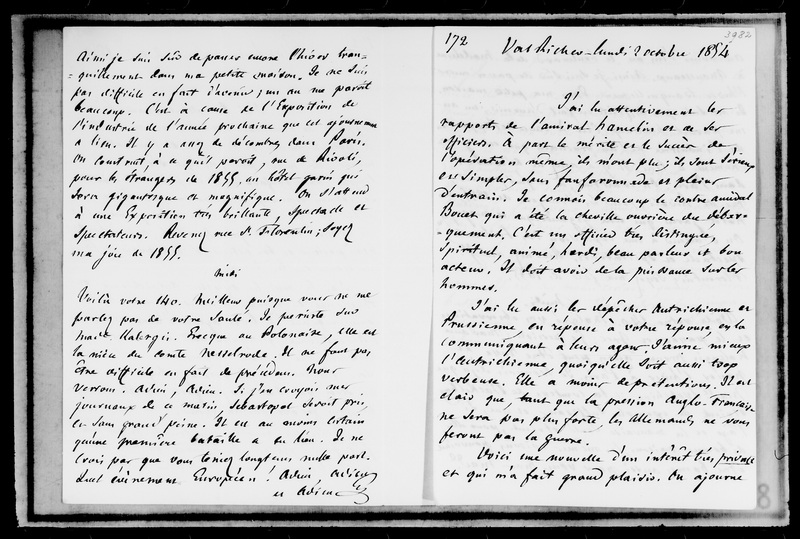 Ainsi je suis sûr de passer encore l'hiver tran-
-quillement dans ma petite maison. Je ne suis
pas difficile en fait d'avenir ; un an me paroît
beaucoup. C'est à cause de l'Exposition de
l'industrie de l'année prochaine que cet ajournement
a lieu. Il y a assez de décombres dans Paris.
On construit, à ce qu'il paroît, rue de Rivoli,
pour les étrangers de 1855, un hôtel garni qui
sera gigantesque et magnifique. On s'attend
à une Exposition très brillante, spectacle et
spectateurs. Revenez rue St Florentin ; soyez
ma joie de 1855.
Midi
Voilà votre 140. Meilleur puisque vous ne me
parlez pas de votre santé. Je persiste sur
Mad. Kalergi. Grecque ou Polonaise, elle est
la nièce du comte Nesselrode. Il ne faut pas
être difficile en fait de prétextes. Nous
verrons. Adieu, Adieu. Si j'en croyois mes
journaux de ce matin, Sebastopol seroit pris,
et sans grand peine. Il est au moins certain
qu'une première bataille a eu lieu. Je ne
crois pas que vous teniez longtems nulle part.
Quel événement Européen ! Adieu, Adieu
et Adieu
172
3982
Val Richer - lundi 2 octobre 1854
J'ai lu attentivement les
rapports de l'amiral Hamelin et de ses
officiers. A part le mérite et le succès de
l'opération même, ils m'ont plu ; ils sont sérieux
et simples, sans fanfaronnade et pleins
d'entrain. Je connois beaucoup le contre amiral
Bouet qui a été la cheville ouvrière du débar-
-quement. C'est un officier très distingué,
spirituel, animé, hardi, beau parleur et bon
acteur. Il doit avoir de la puissance sur les
hommes.
J'ai lu aussi les dépêches Autrichienne et
Prussienne, en réponse à votre réponse, et la
communiquant à leurs agens. J'aime mieux
l'Autrichienne, quoiqu'elle soit aussi trop
verbeuse. Elle a moins de prétentions. Il est
clair que, tant que la pression Anglo-Française
ne sera pas plus forte, les Allemands ne vous
feront pas la guerre.
Voici une nouvelle d'un intérêt très privé
et qui m'a fait grand plaisir. On ajourne
8